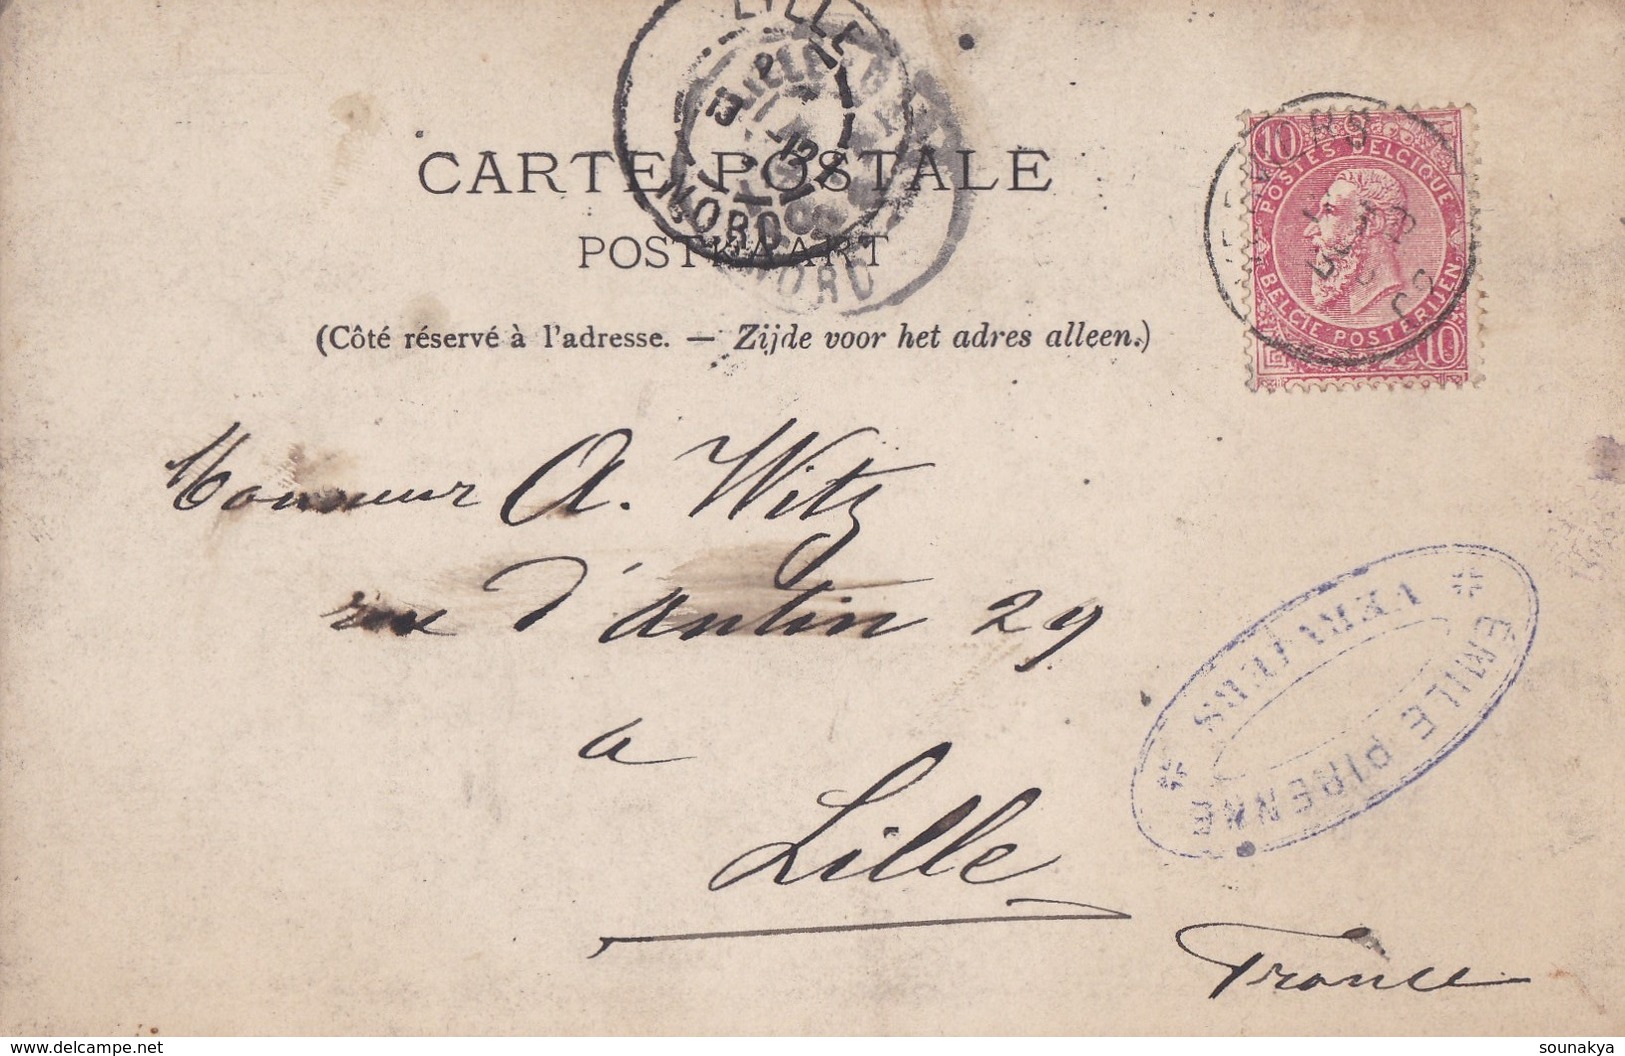 LILLE
NORD
CARTE POSTALE
POSTKAART
(Côté réservé à l'adresse. — Zijde voor het adres alleen.)
10 10
POSTES BELGIQUE
BELGIE POSTERIJEN
10
Monsieur A. Witz
rue d'Antin 29
à
Lille
France
* EMILE PIRENNE *
VERVIERS
www.delcampe.net
sounakya